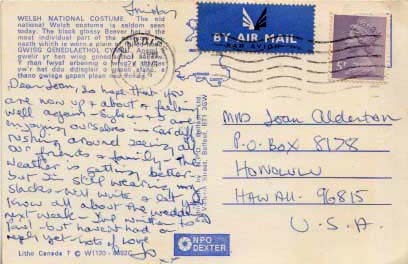 Sunday
WELSH NATIONAL COSTUME. The old
national Welsh costume is seldom seen
today. The black glossy Beaver hat is the
most individual part of the
neath which is worn a plain
GWISG GENEDLAETHOL CYMRU. Anaml
gwelir yr hen wisg genedlaethol
Y rhan fwyaf arbennig o
w'r het ddu ddisglair o
thano gwisgo capan plaen
BY AIR MAIL
PAR AVION
Dear Joan, do hope that you
are now up & about & feeling
well again. & I are
enjoying ourselves in Cardiff
rushing around seeing all
our friends & family - The
weather is getting better -
but I'm still wearing my
slacks - will write & let you
know all about the wedding
next week - I've written to
Paul - but haven't had a
reply yet - Lots of love
Jo x
Mrs Joan Alderton
P.O. Box 8178
HONOLULU
HAWAII - 96815
U.S.A.
NPO
DEXTER
Litho Canada T © W1130
Street, Belfast BT1 3GW